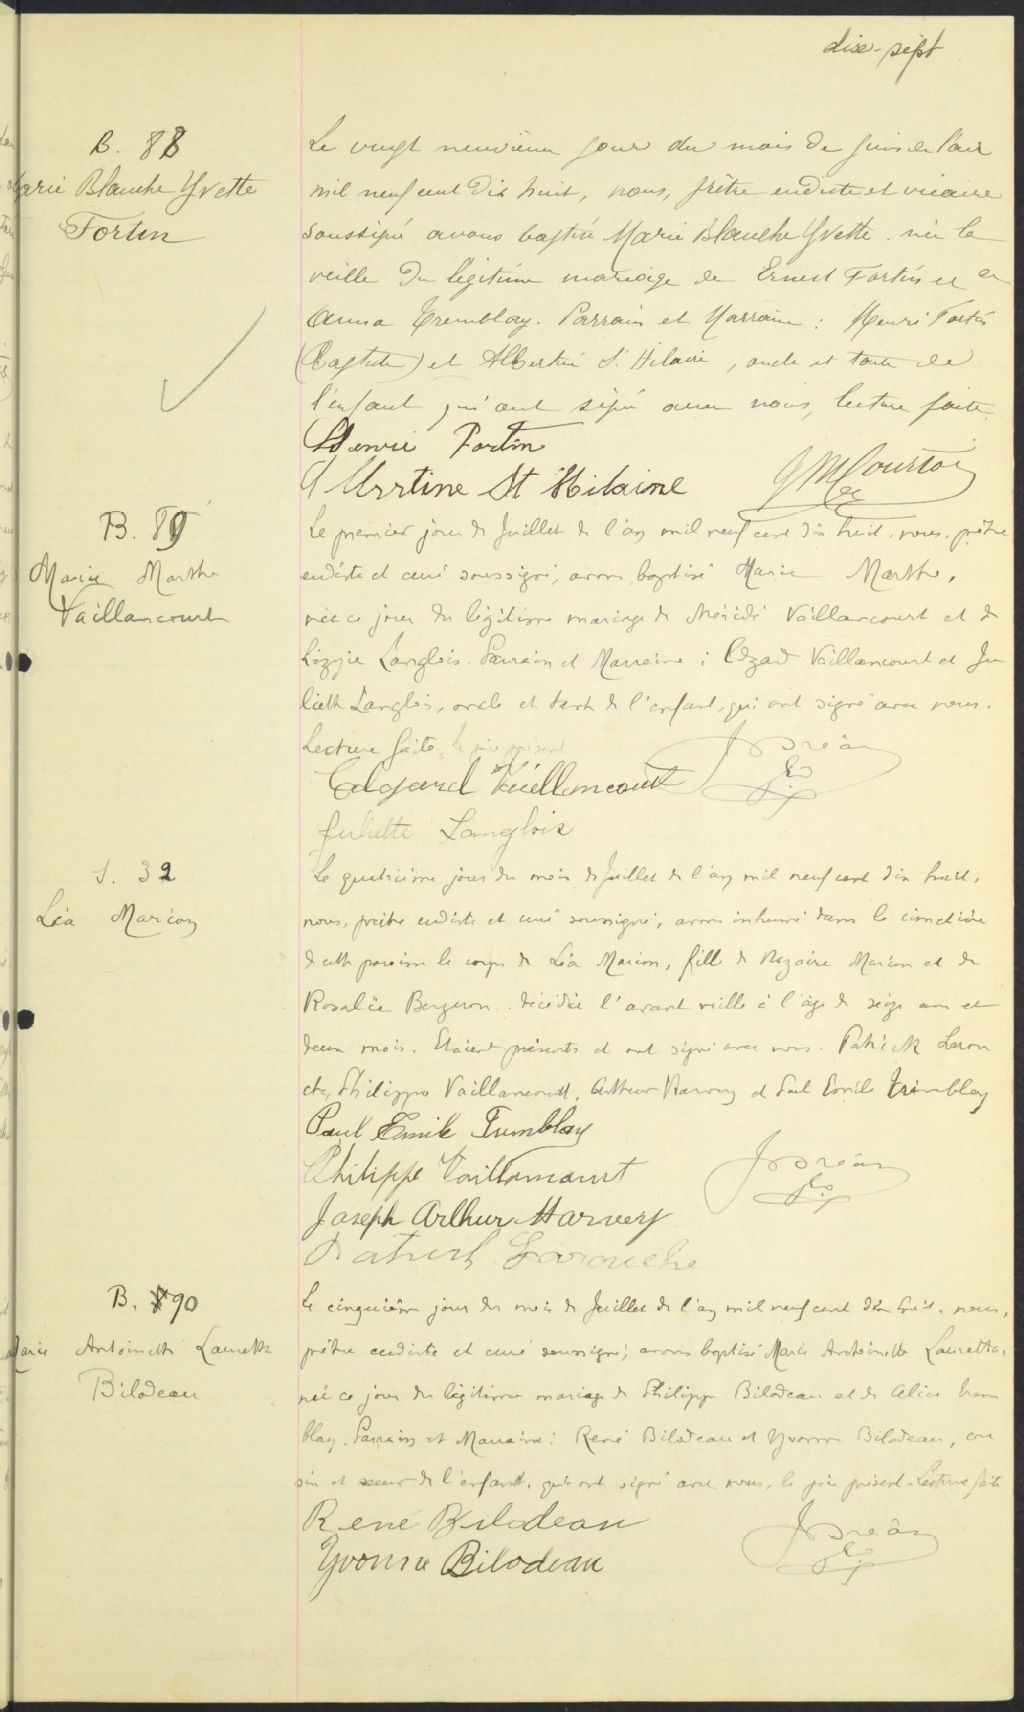 dix-sept
B. 88
Marie Blanche Yvette
Fortin
Le vingt neuvième jour du mois de juin de l'an
mil neuf cent dix huit, nous, prêtre eudiste et vicaire
soussigné avons baptisé Marie Blanche Yvette née la
veille du légitime mariage de Ernest Fortin et de
Anna Tremblay. Parrain et Marraine : Henri Fortin
(Baptiste) et Albertine St Hilaire, oncle et tante de
l'enfant qui ont signé avec nous, lecture faite.
Henri Fortin
Albertine St Hilaire
B. 89
Marie Marthe
Vaillancourt
Le premier jour de Juillet de l'an mil neuf cent dix huit, nous, prêtre
eudiste et curé soussigné, avons baptisé Marie Marthe,
née ce jour du légitime mariage de Vaillancourt et de
Lizzie Langlois. Parrain et Marraine : Edgard Vaillancourt et Ju
liette Langlois, oncle et tante de l'enfant, qui ont signé avec nous.
Lecture faite, le père présent
Edgard Vaillancourt
Juliette Langlois
S. 32
Léa Marion
Le quatrième jour du mois de Juillet de l'an mil neuf cent dix huit,
nous, prêtre eudiste et curé soussigné, avons inhumé dans le cimetière
de cette paroisse le corps de Léa Marion, fille de Nazaire Marion et de
Rosalie Bergeron décédée l'avant veille à l'âge de seize ans et
deux mois. Etaient présents et ont signé avec nous. Patrick Larou
che, Philippe Vaillancourt, Arthur Harvey et Paul Emile Tremblay
Paul Emile Tremblay
Philippe Vaillancourt
Joseph Arthur Harvey
Patrick Larouche
B. 90
Marie Antoinette Laurette
Bilodeau
Le cinquième jour du mois de Juillet de l'an mil neuf cent dix huit, nous,
prêtre eudiste et curé soussigné, avons baptisé Marie Antoinette Laurette,
née ce jour du légitime mariage de Philippe Bilodeau et de Alice Trem
blay. Parrain et Marraine : René Bilodeau et Yvonne Bilodeau, cou
sin et soeur de l'enfant, qui ont signé avec nous, le père présent. Lecture faite
René Bilodeau
Yvonne Bilodeau